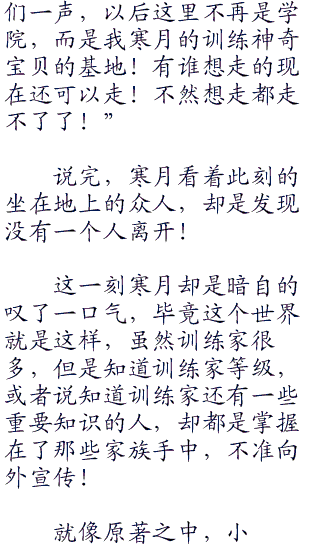 们一声，以后这里不再是学
院，而是我寒月的训练神奇
宝贝的基地！有谁想走的现
在还可以走！不然想走都走
不了了！”
说完，寒月看着此刻的
坐在地上的众人，却是发现
没有一个人离开！
这一刻寒月却是暗自的
叹了一口气，毕竟这个世界
就是这样，虽然训练家很
多，但是知道训练家等级，
或者说知道训练家还有一些
重要知识的人，却都是掌握
在了那些家族手中，不准向
外宣传！
就像原著之中，小